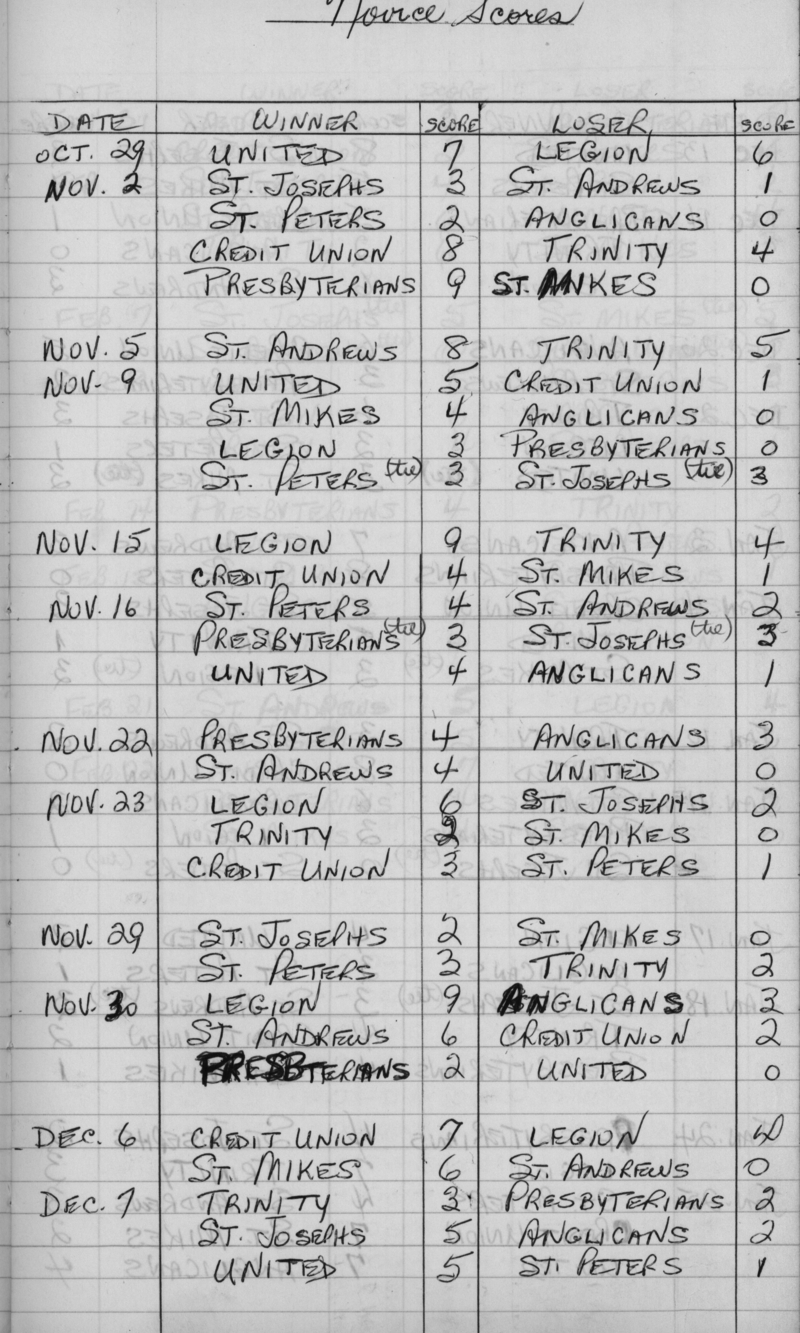 Novice Scores
DATE WINNER SCORE LOSER SCORE
OCT. 29 UNITED 7 LEGION 6
NOV. 2 ST. JOSEPHS 3 ST. ANDREWS 1
ST. PETERS 2 ANGLICANS 0
CREDIT UNION 8 TRINITY 4
PRESBYTERIANS 9 ST. MIKES 0
NOV. 5 ST. ANDREWS 8 TRINITY 5
NOV. 9 UNITED 5 CREDIT UNION 1
ST. MIKES 4 ANGLICANS 0
LEGION 3 PRESBYTERIANS 0
ST. PETERS (tie) 3 ST. JOSEPHS (tie) 3
NOV. 15 LEGION 9 TRINITY 4
CREDIT UNION 4 ST. MIKES 1
NOV. 16 ST. PETERS 4 ST. ANDREWS 2
PRESBYTERIANS (tie) 3 ST. JOSEPHS (tie) 3
UNITED 4 ANGLICANS 1
NOV. 22 PRESBYTERIANS 4 ANGLICANS 3
ST. ANDREWS 4 UNITED 0
NOV. 23 LEGION 6 ST. JOSEPHS 2
TRINITY ST. MIKES 0
CREDIT UNION 3 ST. PETERS 1
NOV. 29 ST. JOSEPHS 2 ST. MIKES 0
ST. PETERS 3 TRINITY 2
NOV. 30 LEGION 9 ANGLICANS 3
ST. ANDREWS 6 CREDIT UNION 2
PRESBTERIANS 2 UNITED 0
DEC. 6 CREDIT UNION 7 LEGION
ST. MIKES 6 ST. ANDREWS 0
DEC. 7 TRINITY 3 PRESBYTERIANS 2
ST. JOSEPHS 5 ANGLICANS 2
UNITED 5 ST. PETERS 1